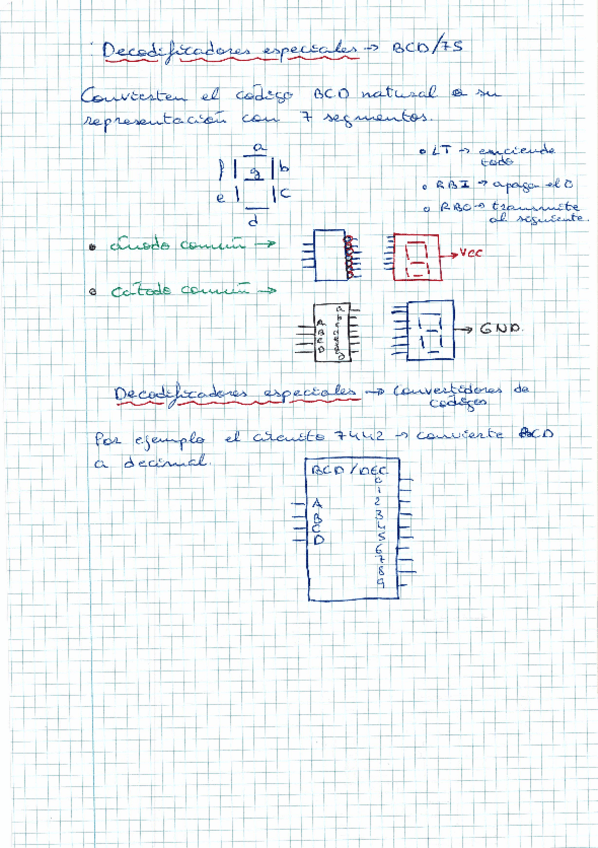 Decodificadores especiales → BCD/7S
Convierten el código BCD natural a su
representación con 7 segmentos.
a
f g b
e c
d
• LT → enciende
todo
• RBI → apaga el 0
• RBO → transmite
al siguiente.
• ánodo común →
VCC
• cátodo común →
A
B
C
D
GND
Decodificadores especiales → Convertidores de
códigos
Por ejemplo el circuito 7442 → convierte BCD
a decimal.
BCD/DEC
0
1
A 2
B 3
C 4
D 5
6
7
8
9